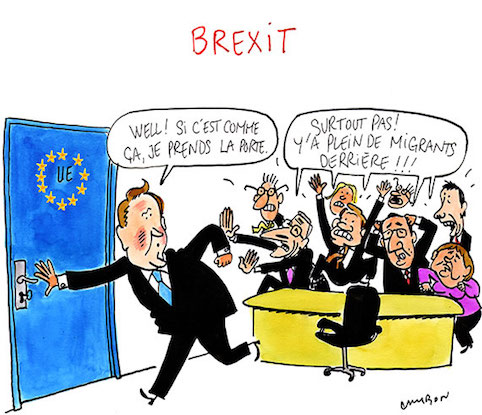 BREXIT
WELL! SI C'EST COMME
ÇA, JE PRENDS LA PORTE.
SURTOUT PAS!
Y'A PLEIN DE MIGRANTS
DERRIÈRE!!!
UE